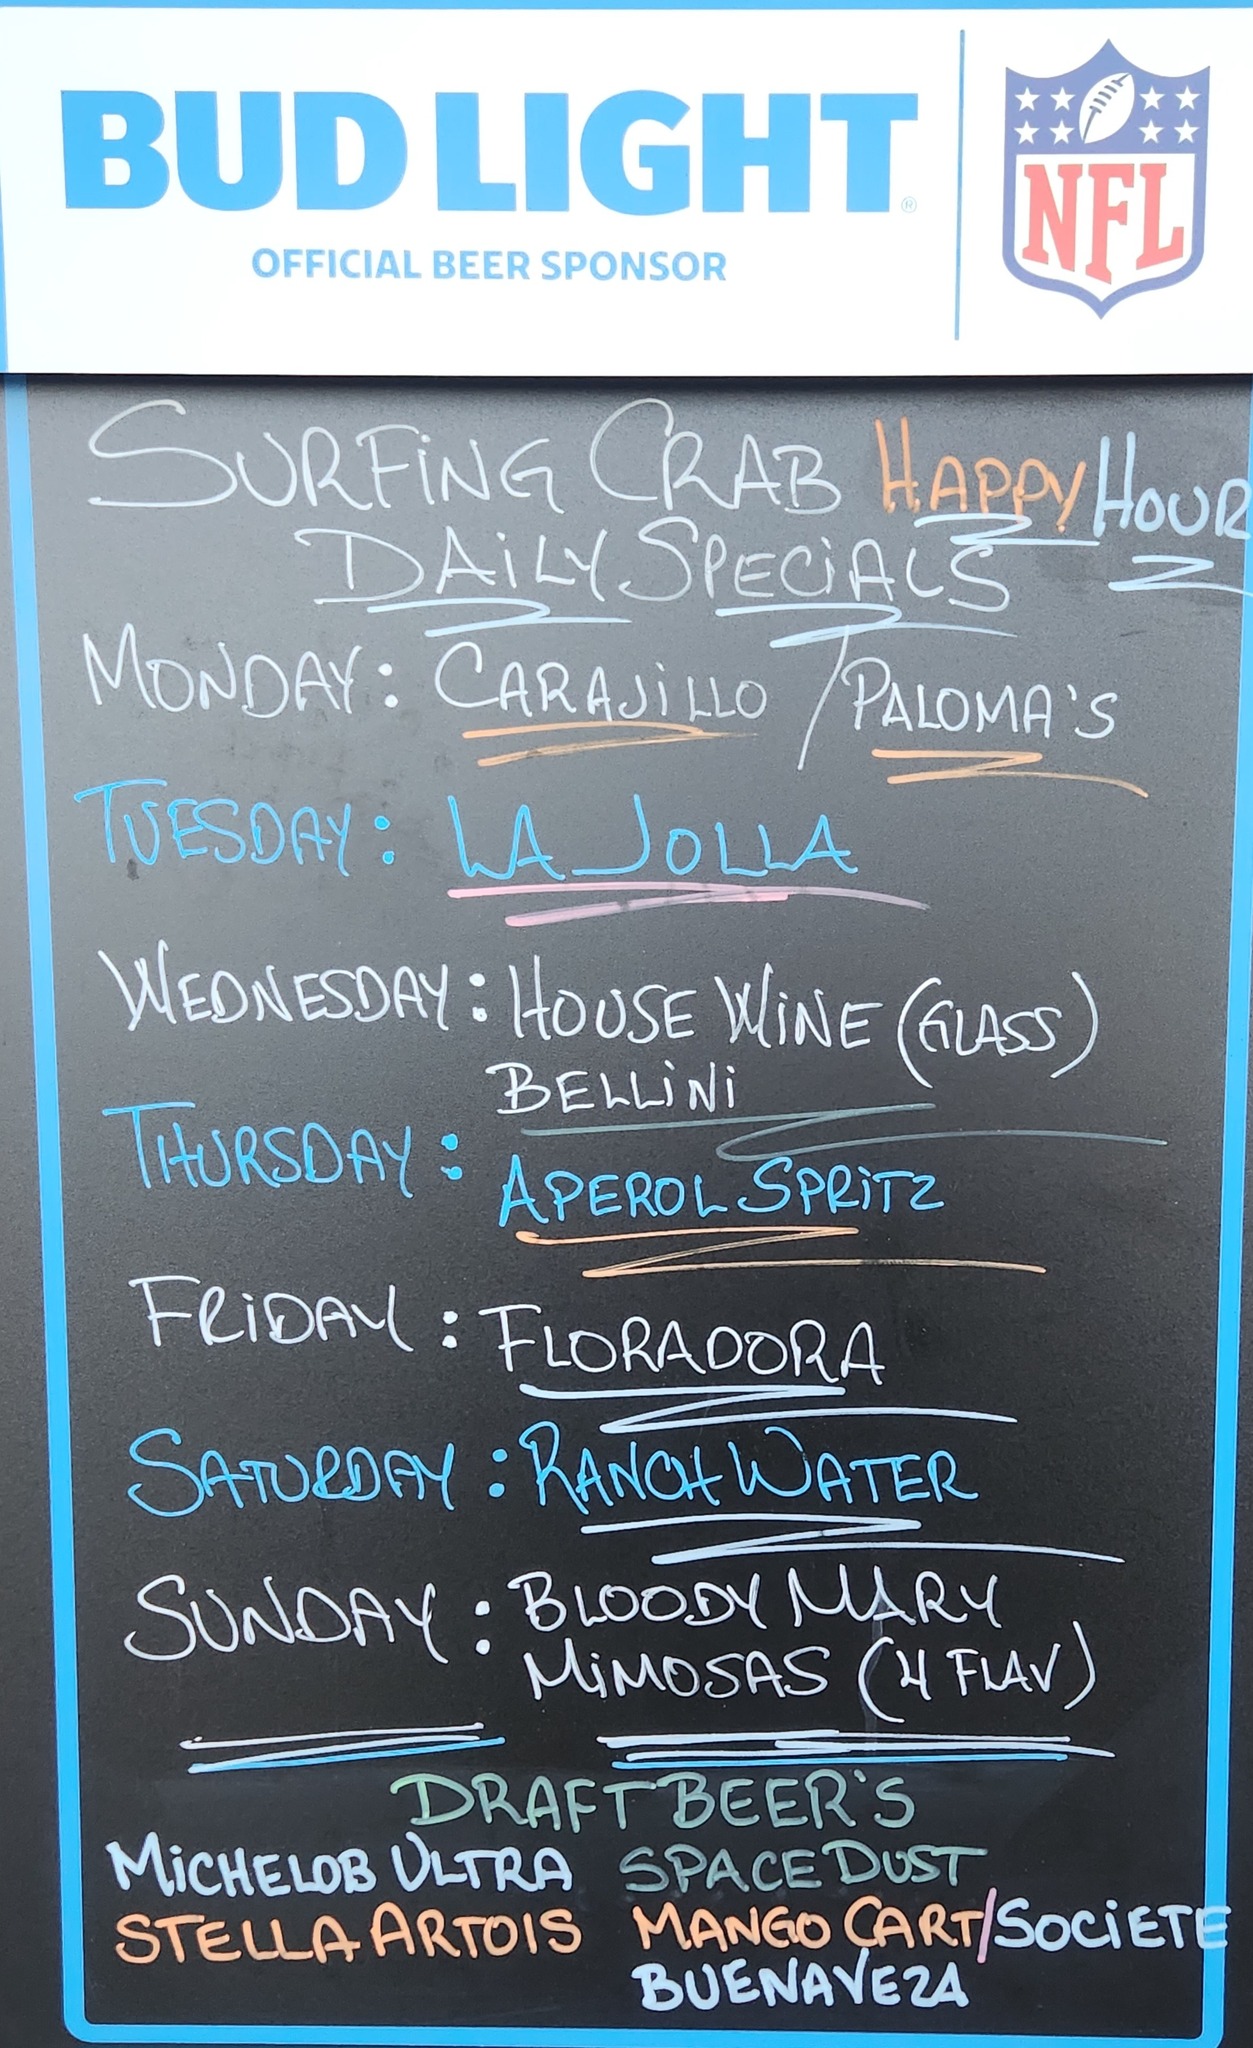 BUD LIGHT®
OFFICIAL BEER SPONSOR
NFL
SURFiNG CRAB HAPPY HOUR
DAiLY SPECiALS
MONDAY: CARAJiLLO / PALOMA'S
TUESDAY: LA JOLLA
WEDNESDAY: HOUSE WiNE (GLASS)
BELLiNi
THURSDAY: APEROL SPRiTZ
FRiDAY: FLORADORA
SATURDAY: RANCH WATER
SUNDAY: BLOODY MARY
MiMOSAS (4 FLAV)
DRAFT BEER'S
MiCHELOB ULTRA SPACE DUST
STELLA ARTOIS MANGO CART/SOCiETE
BUENAVEZA